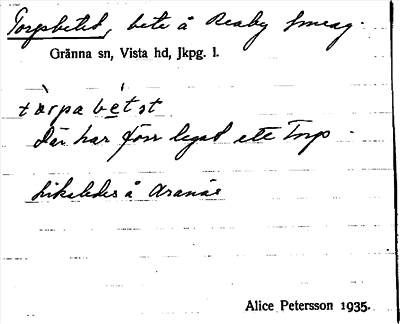 Torpsbetet, bete å Reaby smeag.
Gränna sn, Vista hd, Jkpg. l.
tòrpabètət
där har förr legat ett Torp.
likaledes å Aranäs
Alice Petersson 1935.